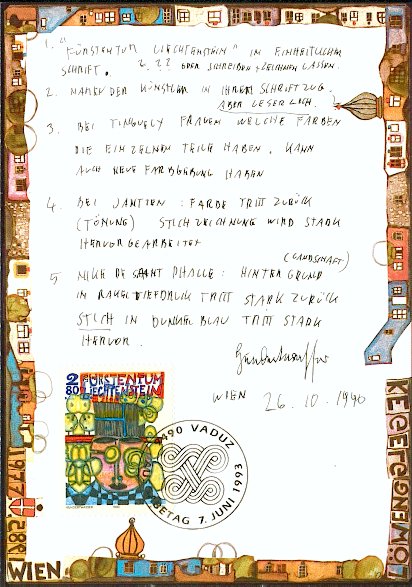 1. "FÜRSTENTUM LIECHTENSTEIN" IM EINHEITLICHEN
SCHRIFT. 2.22 ODER SCHREIBEN + ZEICHNEN LASSEN.
2. NAMEN DER KÜNSTLER IN IHREM SCHRIFTZUG.
ABER LESERLICH.
3. BEI TINGUELY FRAGEN WELCHE FARBEN
DIE EINZELNEN TEILE HABEN. KANN
AUCH NEUE FARBGEBUNG HABEN
4. BEI : FARBE TRITT ZURÜCK
(TÖNUNG) STICHZEICHNUNG WIRD STARK
HERVORGEARBEITET
(LANDSCHAFT)
5 NIKI DE SAINT PHALLE: HINTERGRUND
IN RAKELTIEFDRUCK TRITT STARK ZURÜCK
STICH IN DUNKELBLAU TRITT STARK
HERVOR.
Hundertwasser
WIEN 26.10.1990
2 80 FÜRSTENTUM
LIECHTENSTEIN
HUNDERTWASSER
9490 VADUZ
7. JUNI 1993
1977
1985
WIEN
KEGELGASSE
LÖWENG